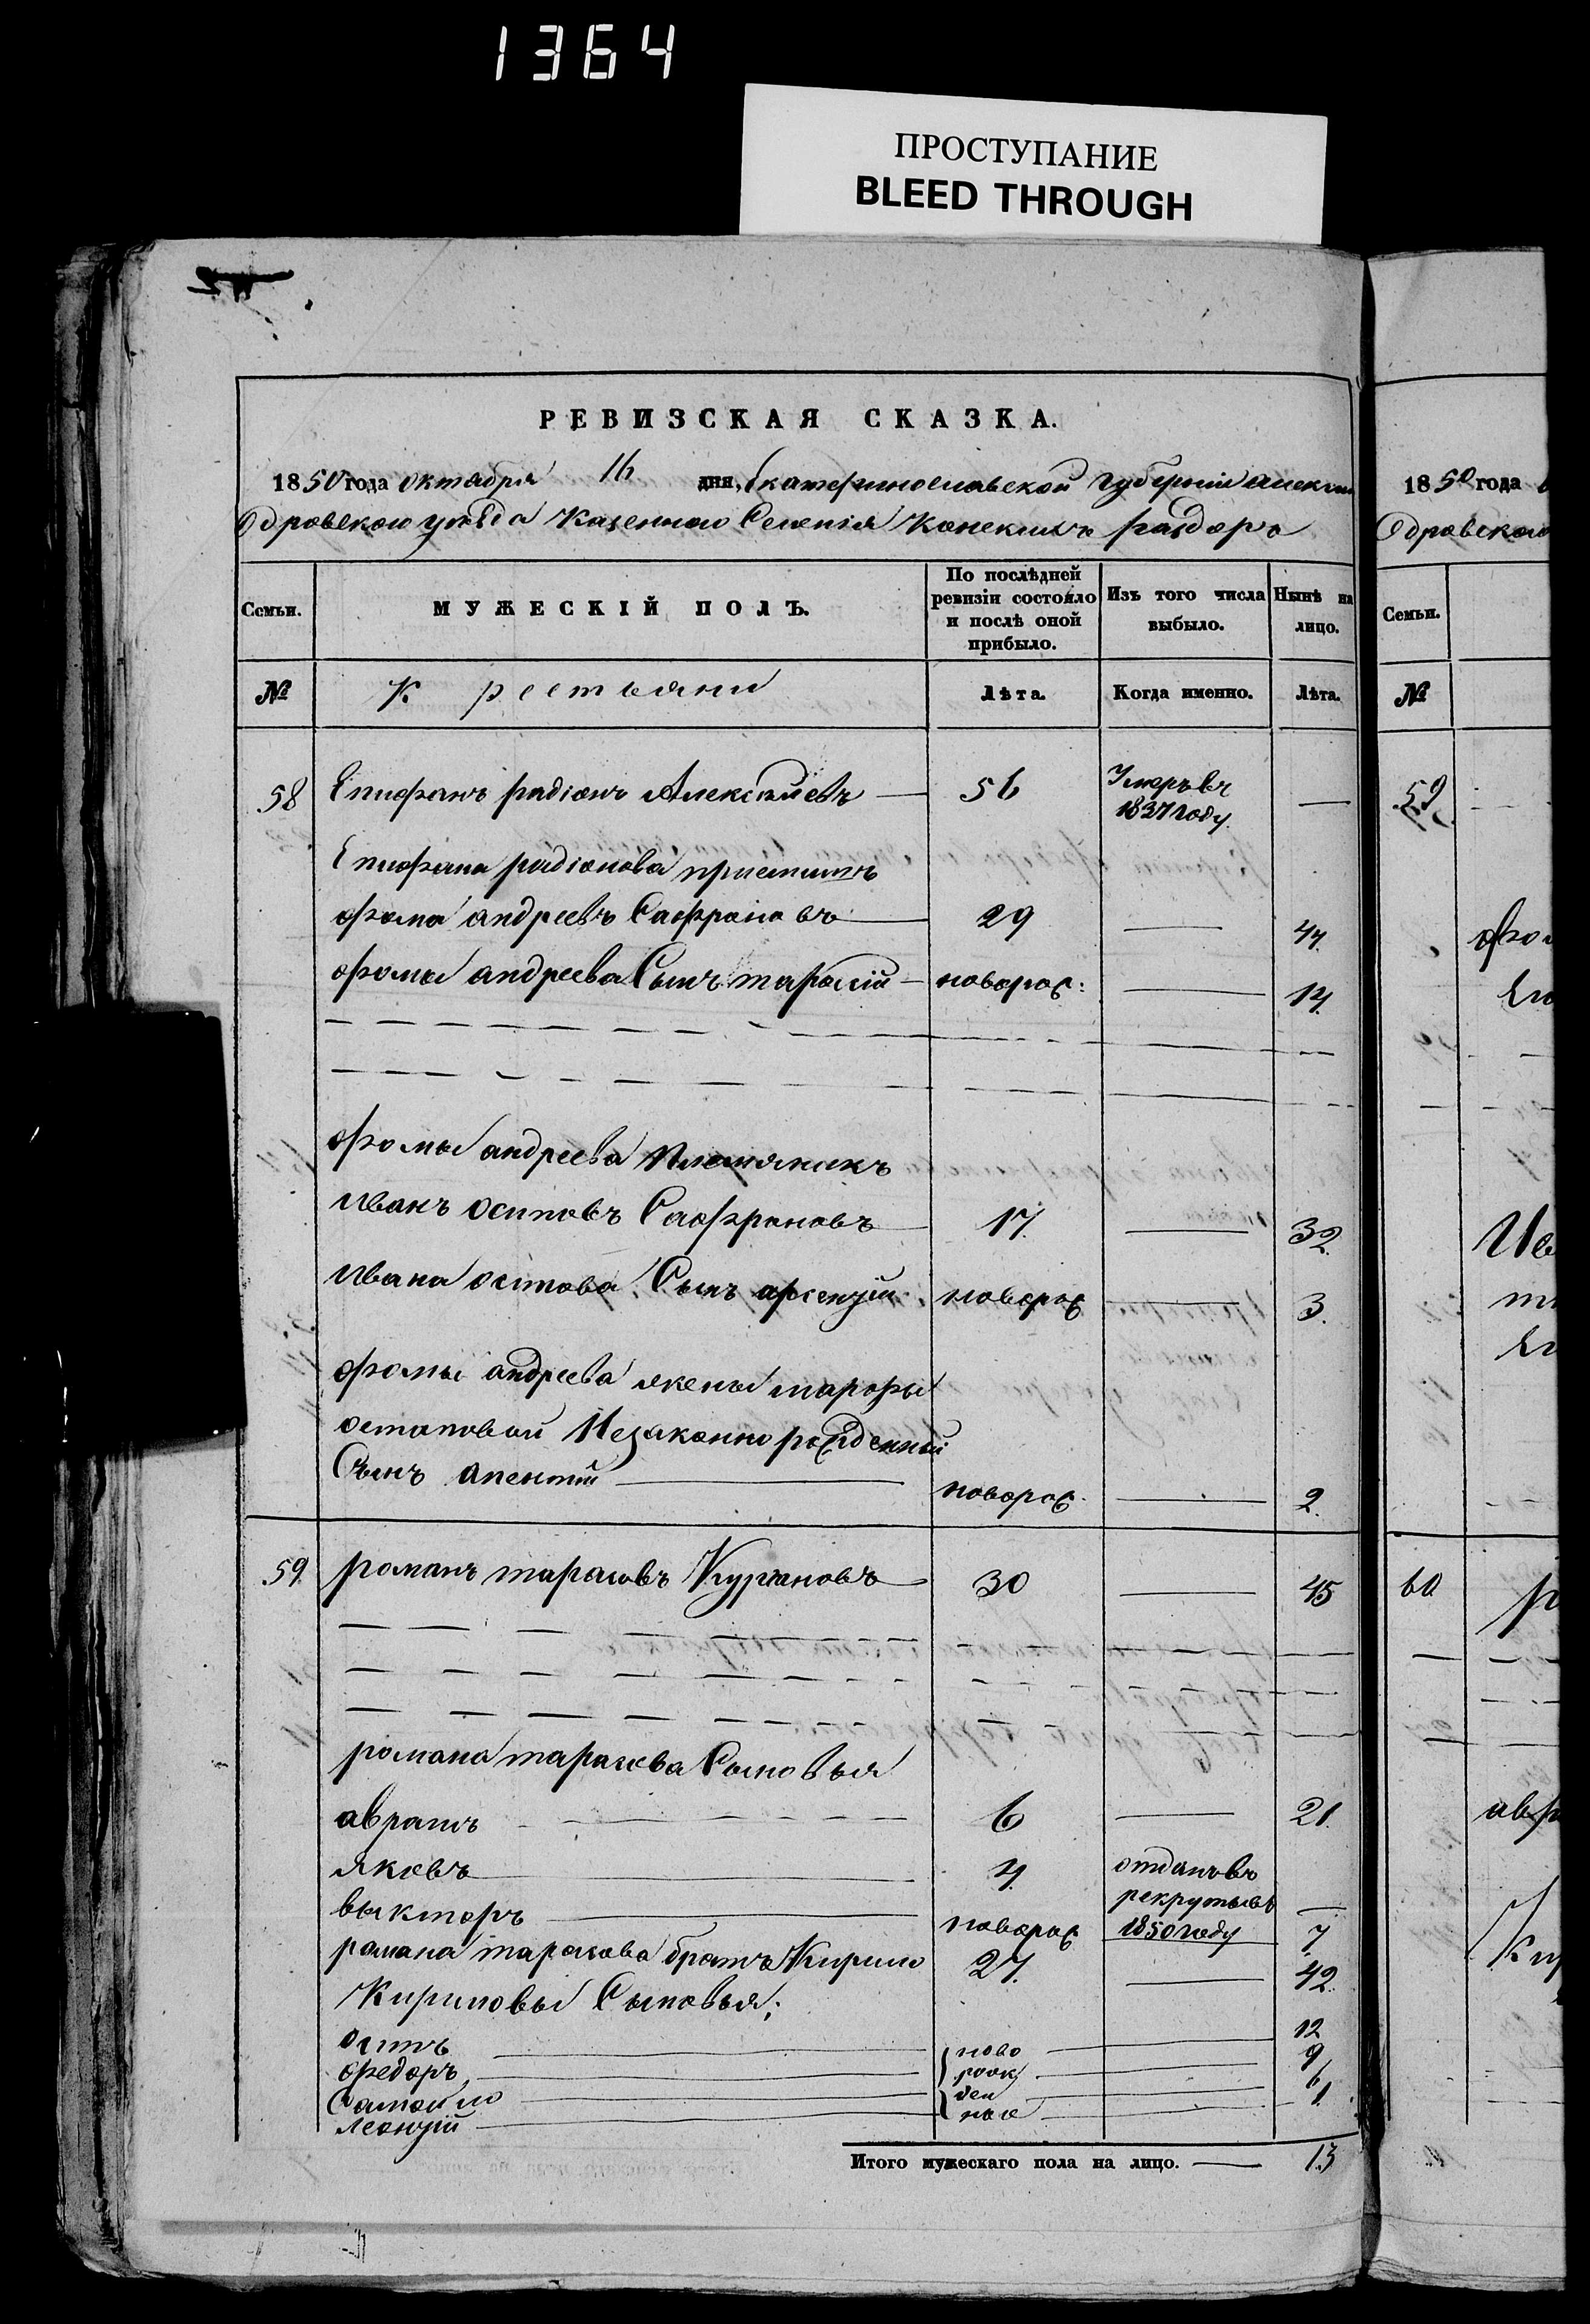 1364
ПРОСТУПАНИЕ
BLEED THROUGH
РЕВИЗСКАЯ СКАЗКА.
1850 года октября 16 дня, Екатеринославской губерніи Алекса
ндровского уезда Казенного Селенія Конских раздоръ
Семьи.
МУЖЕСКІЙ ПОЛЪ.
По послѣдней ревизіи состояло и послѣ оной прибыло.
Изъ того числа выбыло.
Нынѣ на лицо.
№
Крестьяни
Лѣта.
Когда именно.
Лѣта.
58 Епифанъ радіонъ Алексѣиевъ 56 Умеръ въ 1837 году. —
Епифана радіонова приемишъ
фома андреевъ Сафрановъ 29 — 44.
фомы андреева Сынъ тарасій новорож: — 14.
фомы андреева племяникъ
Иванъ осиповъ Сафроновъ 17. — 32.
Ивана осипова Сынъ арсентій новорож — 3.
фомы андреева жены марфы
остаповой Незаконно рожденный
Сынъ
новорож. — 2.
59. романъ тарасовъ Курхановъ 30 — 45
романа тарасова Сыновья
аврамъ 6 — 21.
яковъ 4. отданъ въ рекруты въ 1850 году —
выкторъ новорож 7
романа тарасова братъ Кирило 27. — 42.
Кириловы Сыновья;
осипъ ново 12
федоръ рож 9
Самойло ден 6
леонтій ные 1.
Итого мужескаго пола на лицо. — 13
1850 года
ндровского
Семьи.
№
59
фом
Ив
60
р
авр
Кир